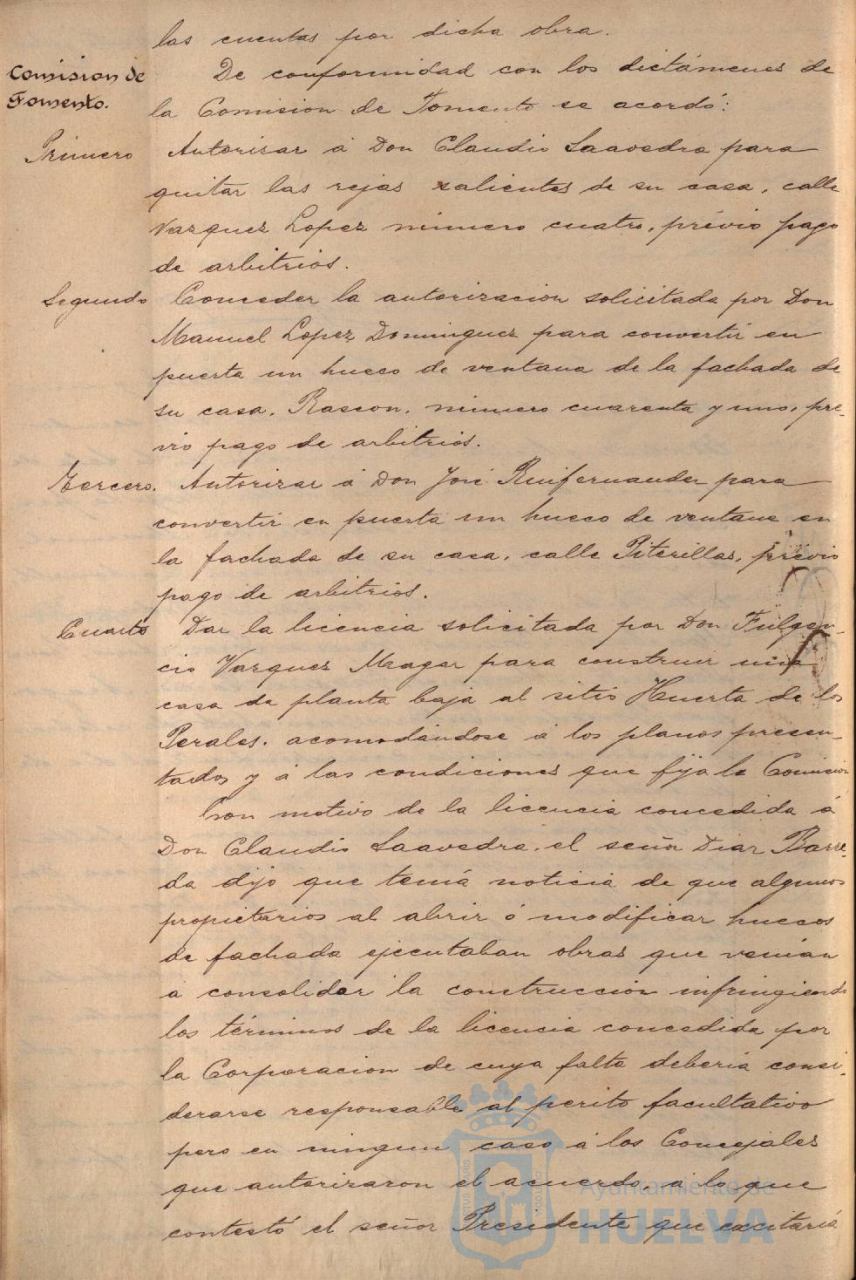 las cuentas por dicha obra.
Comision de
Fomento.
De conformidad con los dictámenes de
la Comision de Fomento se acordó:
Primero
Autorizar á Don Claudio Saavedra para
quitar las rejas salientes de su casa, calle
Vazquez Lopez número cuatro, prévio pago
de arbitrios.
Segundo
Conceder la autorizacion solicitada por Don
Manuel Lopez Dominguez para convertir en
puerta un hueco de ventana de la fachada de
su casa, Rascon, número cuarenta y uno, pre-
vio pago de arbitrios.
Tercero.
Autorizar á Don José Ruifernandez para
convertir en puerta un hueco de ventana en
la fachada de su casa, calle Piterillas, prévio
pago de arbitrios.
Cuarto
Dar la licencia solicitada por Don Fulgen-
cio Vazquez Magar para construir una
casa de planta baja al sitio Huerta de los
Perales, acomodándose á los planos presen-
tados y á las condiciones que fija la Comision
Con motivo de la licencia concedida á
Don Claudio Saavedra, el señor Diaz Barre-
da dijo que tenia noticia de que algunos
propietarios al abrir ó modificar huecos
de fachada ejecutaban obras que venian
á consolidar la construccion infringiendo
los términos de la licencia concedida por
la Corporacion de cuya falta deberia consi-
derarse responsable al perito facultativo
pero en ningun caso á los Concejales
que autorizaron el acuerdo, á lo que
contestó el señor Presidente que excitaria
Ayuntamiento de
HUELVA